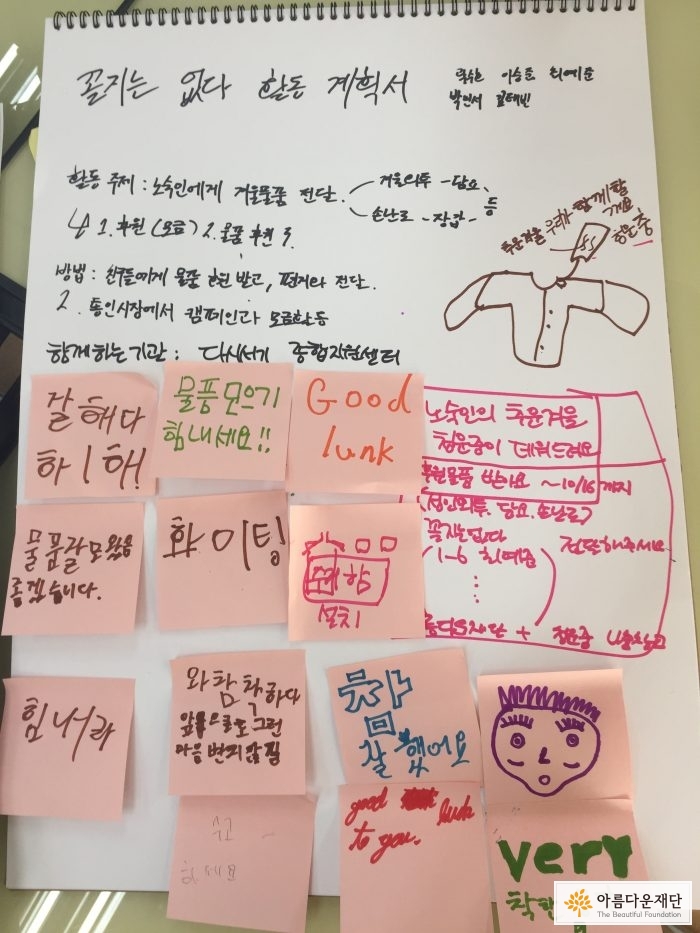 꼴지는 없다 활동 계획서
이승준 최예준
활동 주제 : 노숙인에게 겨울물품 전달.
겨울외투 - 담요,
손난로 - 장갑 - 등
↳ 1. 후원 (모금) 2. 물품 후원 3.
추운겨울 우리가 함께 할
게요
청운중
방법 : 친구들에게 물품 후원 받고, 편지와 전달.
2. 통인시장에서 캠페인과 모금활동
함께하는기관 : 다시서기 종합지원센터
잘 해다
하ㅣ해!
물품모으기
힘내세요!!
Good
lunk
노숙인의 추운겨울
청운중이 데워드려요
후원물품 받아요 ~10/16까지
(성인외투, 담요, 손난로)
꼴지는없다
1-6 최예준
전달해주세요
물품잘모왔음
좋겠습니다.
화이팅
설치
름다운재단 + 청운중
힘내라
와 참 착하다
앞으로도 그런
마음 변치 않길
참
잘했어요
수고
하세요
good luck
to you.
very
착한
아름다운재단
The Beautiful Foundation